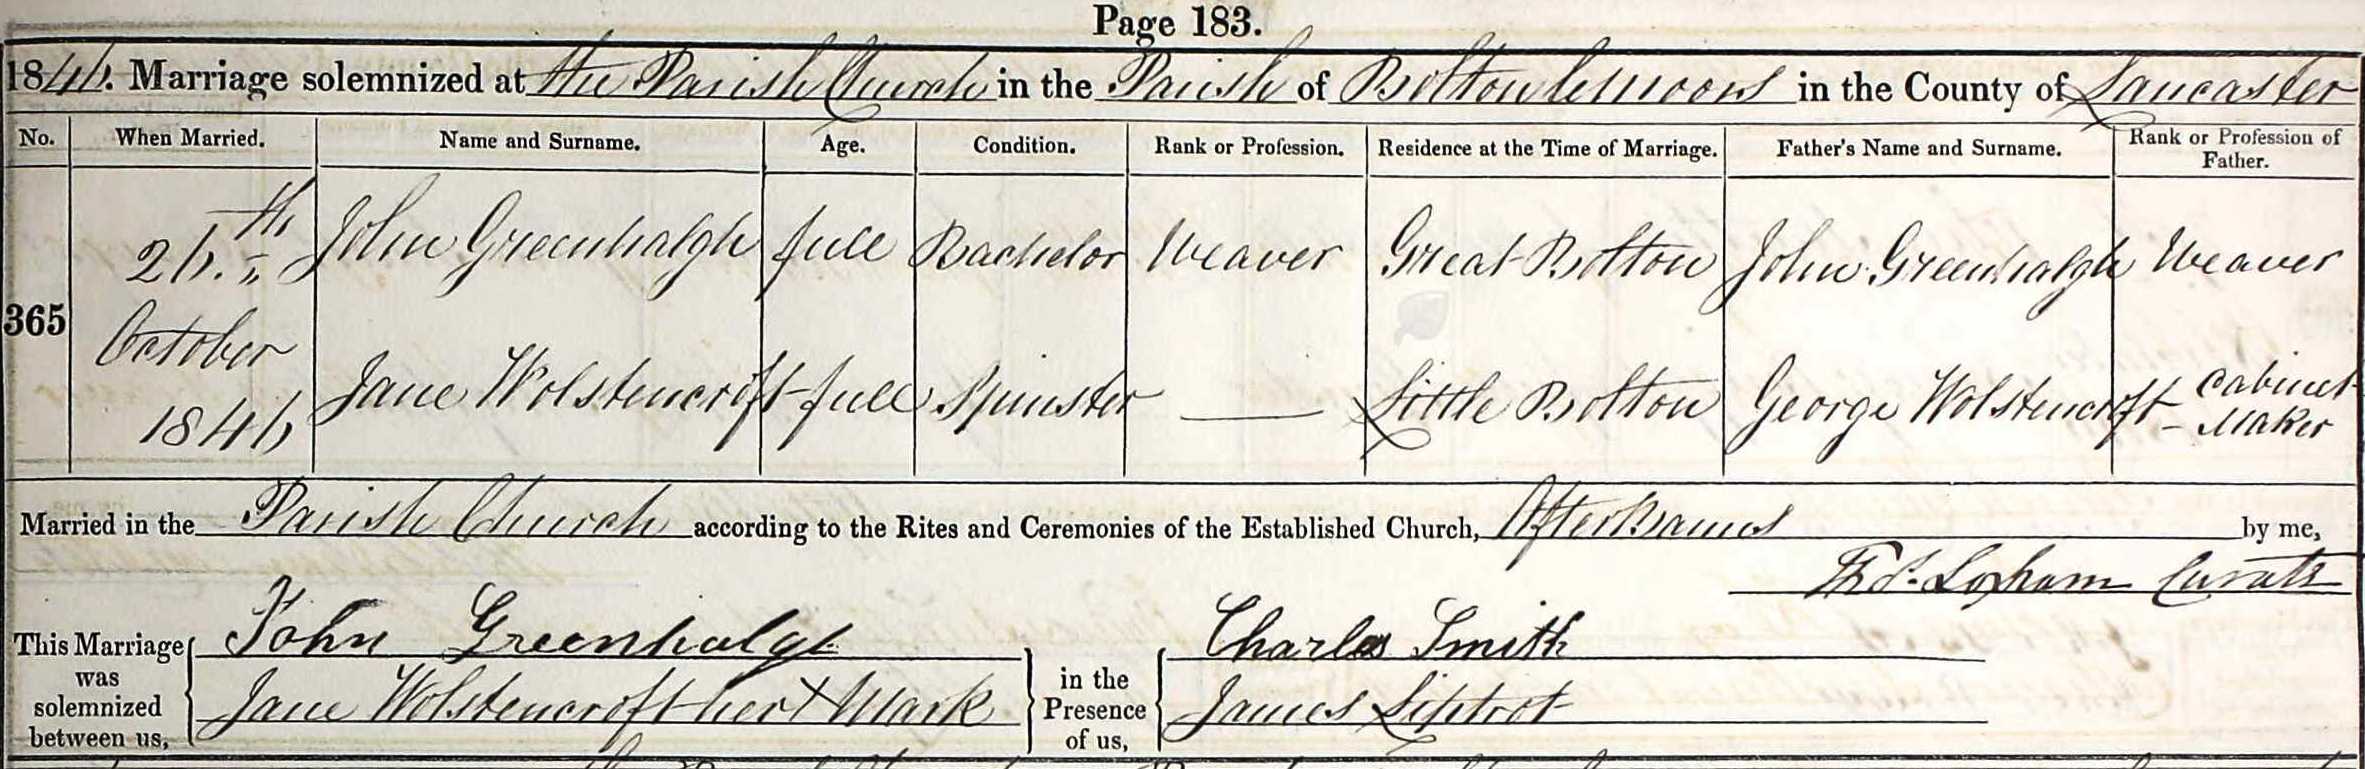 Page 183.
1846. Marriage solemnized at the Parish Church in the Parish of Bolton le Moors in the County of Lancaster
No. When Married. Name and Surname. Age. Condition. Rank or Profession. Residence at the Time of Marriage. Father's Name and Surname. Rank or Profession of Father.
365
26th October 1846
John Greenhalgh full Bachelor Weaver Great Bolton John Greenhalgh Weaver
Jane Wolstencroft full Spinster — Little Bolton George Wolstencroft Cabinet Maker
Married in the Parish Church according to the Rites and Ceremonies of the Established Church, After Banns by me,
Thos. Loxham Curate
This Marriage was solemnized between us,
John Greenhalgh
Jane Wolstencroft her X Mark
in the Presence of us,
Charles Smith
James Liptrot